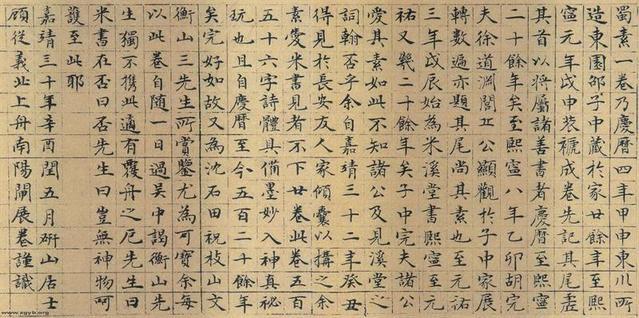 蜀素一卷乃慶曆四年甲申東川所
造東園邵子中藏於家廿餘年至熙
寧元年戊申裝褫成卷先記其尾虛
其首以將屬諸善書者慶曆至熙寧
二十餘年矣至熙寧八年乙卯胡完
夫徐道淵閭丘公顯觀於子中家展
轉數遍亦題其尾尚其素也至元祐
三年戊辰始為米溪堂書熙寧至元
祐又幾二十餘年矣子中完夫諸公
愛其素如此不知諸公及見溪堂之
詞翰否乎余自嘉靖三十二年癸丑
得見於長安友人家傾囊以購之余
素愛米書見者不下廿卷此卷五百
五十六字詩體具備墨妙入神真祕
玩也且自慶曆至今五百二十餘年
矣完好如故又為沈石田祝枝山文
衡山三先生所賞鑒尤為可寶余每
以此卷自隨一日過吳中謁衡山先
生獨不攜此適有覆舟之厄先生曰
米書在否曰否先生曰豈無神物呵
護至此耶
嘉靖三十年辛酉閏五月硏山居士
顧從義北上舟南陽閘展卷謹識